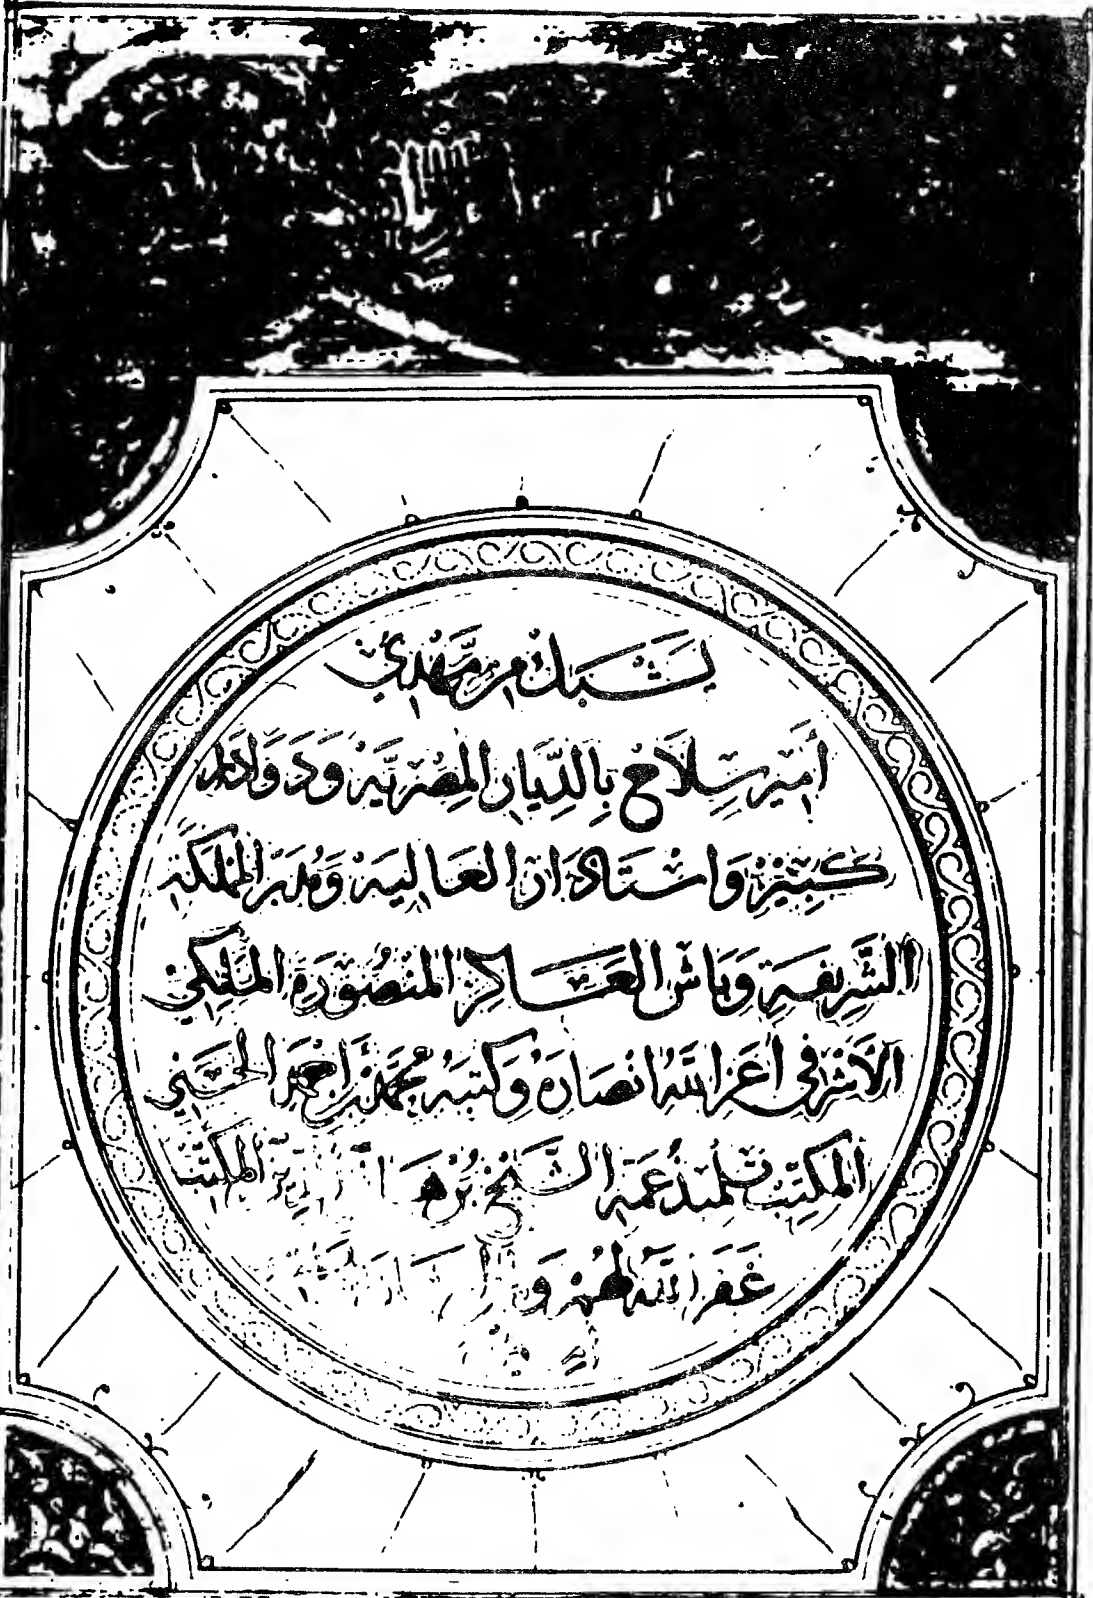 يشبك من مهدي
أمير سلاح بالديار المصرية ودوادار
كبير واستادار العالية ومدبر المملكة
الشريفة وباش العساكر المنصورة الملكي
الاشرفي أعز الله انصاره وكتبه محمد بن احمد الحسني
المكتب تلميذ عمه الشيخ برها المكتب
غفر الله لهم و